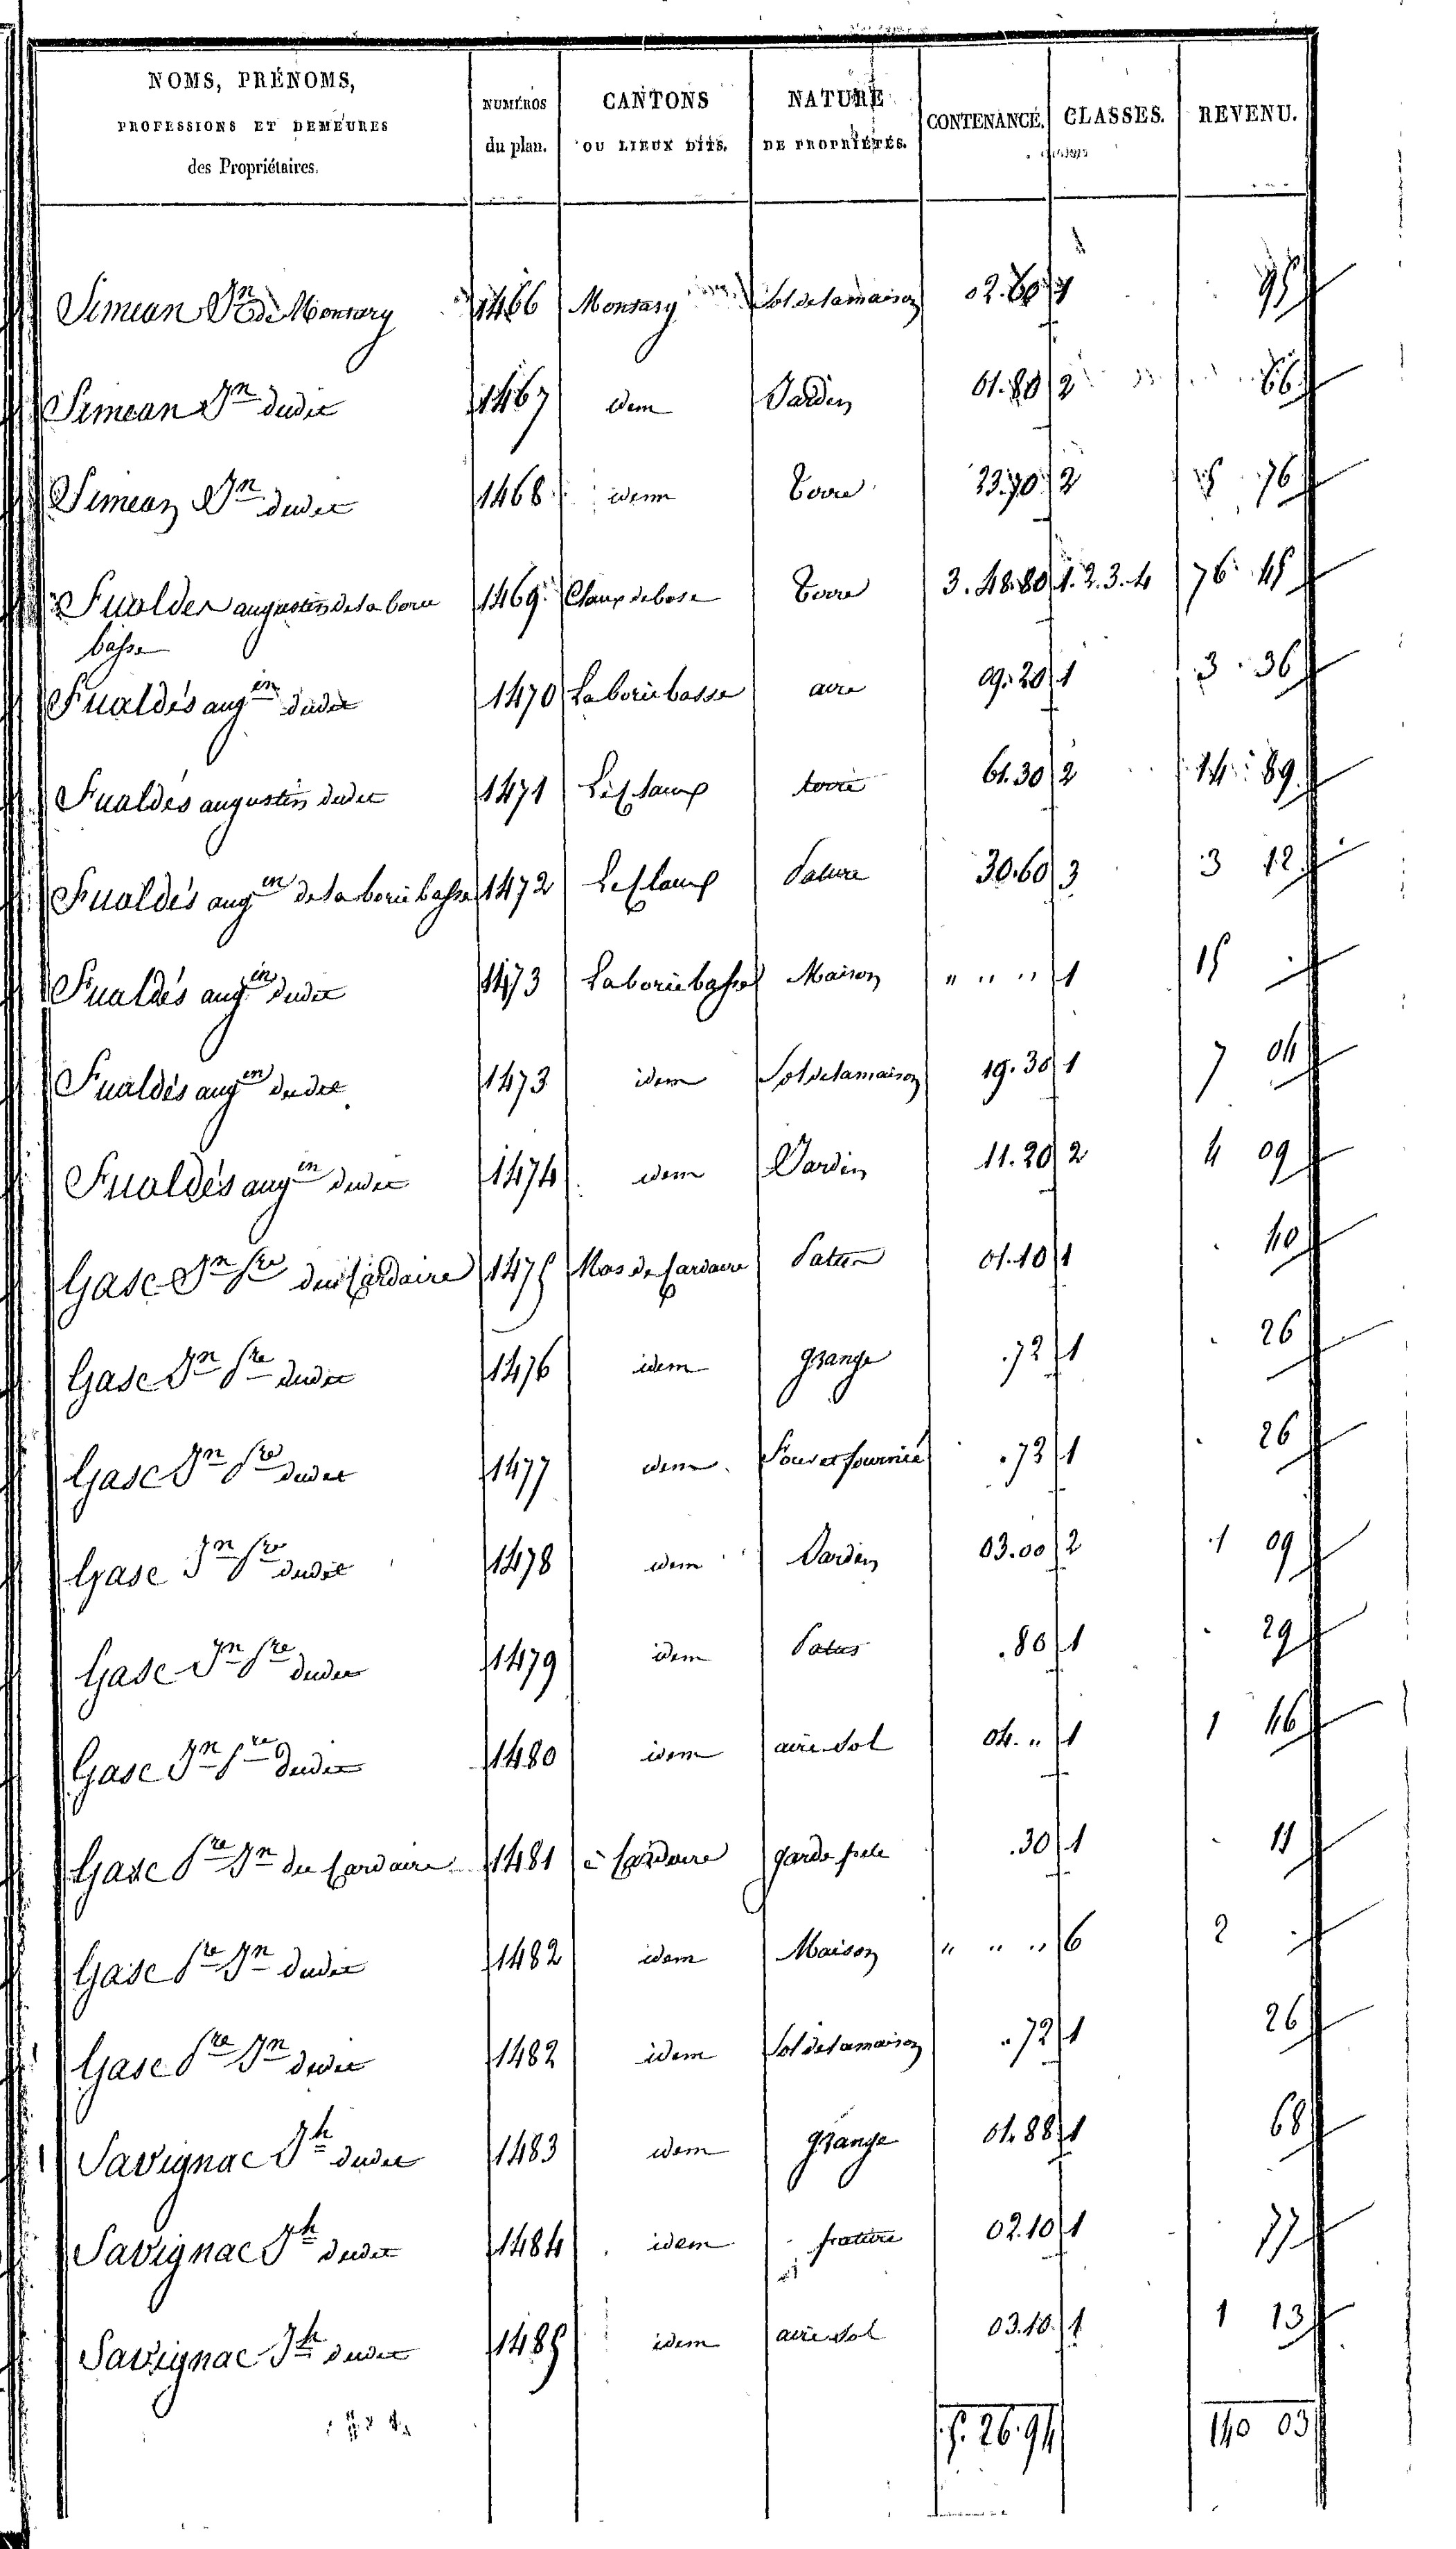 NOMS, PRÉNOMS, PROFESSIONS ET DEMEURES des Propriétaires. NUMÉROS du plan. CANTONS OU LIEUX DITS. NATURE DE PROPRIÉTÉS. CONTENANCE. CLASSES. REVENU.
Simean Jn de Monsarg 1466 Monsarg Sol de la maison 02.60 1 95
Simean Jn dudit 1467 idem Jardin 01.80 2 66
Simean Jn dudit 1468 idem terre 23.70 2 5 76
Fualdes augustin de la borie basse 1469 Claux debose terre 3.48.80 1.2.3.4 76 45
Fualdés augin dudit 1470 La borie basse aire 09.20 1 3 36
Fualdés augustin dudit 1471 Le Claux terre 61.30 2 14 89
Fualdés augin de la borie basse 1472 Le Claux Pature 30.60 3 3 12
Fualdés augin dudit 1473 La borie basse Maison " " " 1 15 .
Fualdés augin dudit 1473 idem Sol de la maison 19.30 1 7 04
Fualdés augin dudit 1474 idem Jardin 11.20 2 4 09
Gasc Jn Pre du Cardaire 1475 Mas de Cardaire 01.10 1 . 40
Gasc Jn Pre dudit 1476 idem grange .72 1 . 26
Gasc Jn Pre dudit 1477 idem Four et fournié .73 1 . 26
Gasc Jn Pre dudit 1478 idem Jardin 03.00 2 1 09
Gasc Jn Pre dudit 1479 idem Patus .80 1 . 29
Gasc Jn Pre dudit 1480 idem aire sol 04. " 1 1 46
Gasc Pre Jn du Cardaire 1481 à Cardaire garde pile .30 1 . 11
Gasc Pre Jn dudit 1482 idem Maison " " " 6 2 .
Gasc Pre Jn dudit 1482 idem Sol de la maison .72 1 26
Savignac Jh dudit 1483 idem grange 01.88 1 68
Savignac Jh dudit 1484 idem 02.10 1 77
Savignac Jh dudit 1485 idem aire sol 03.10 1 1 13
5.26.94 140 03